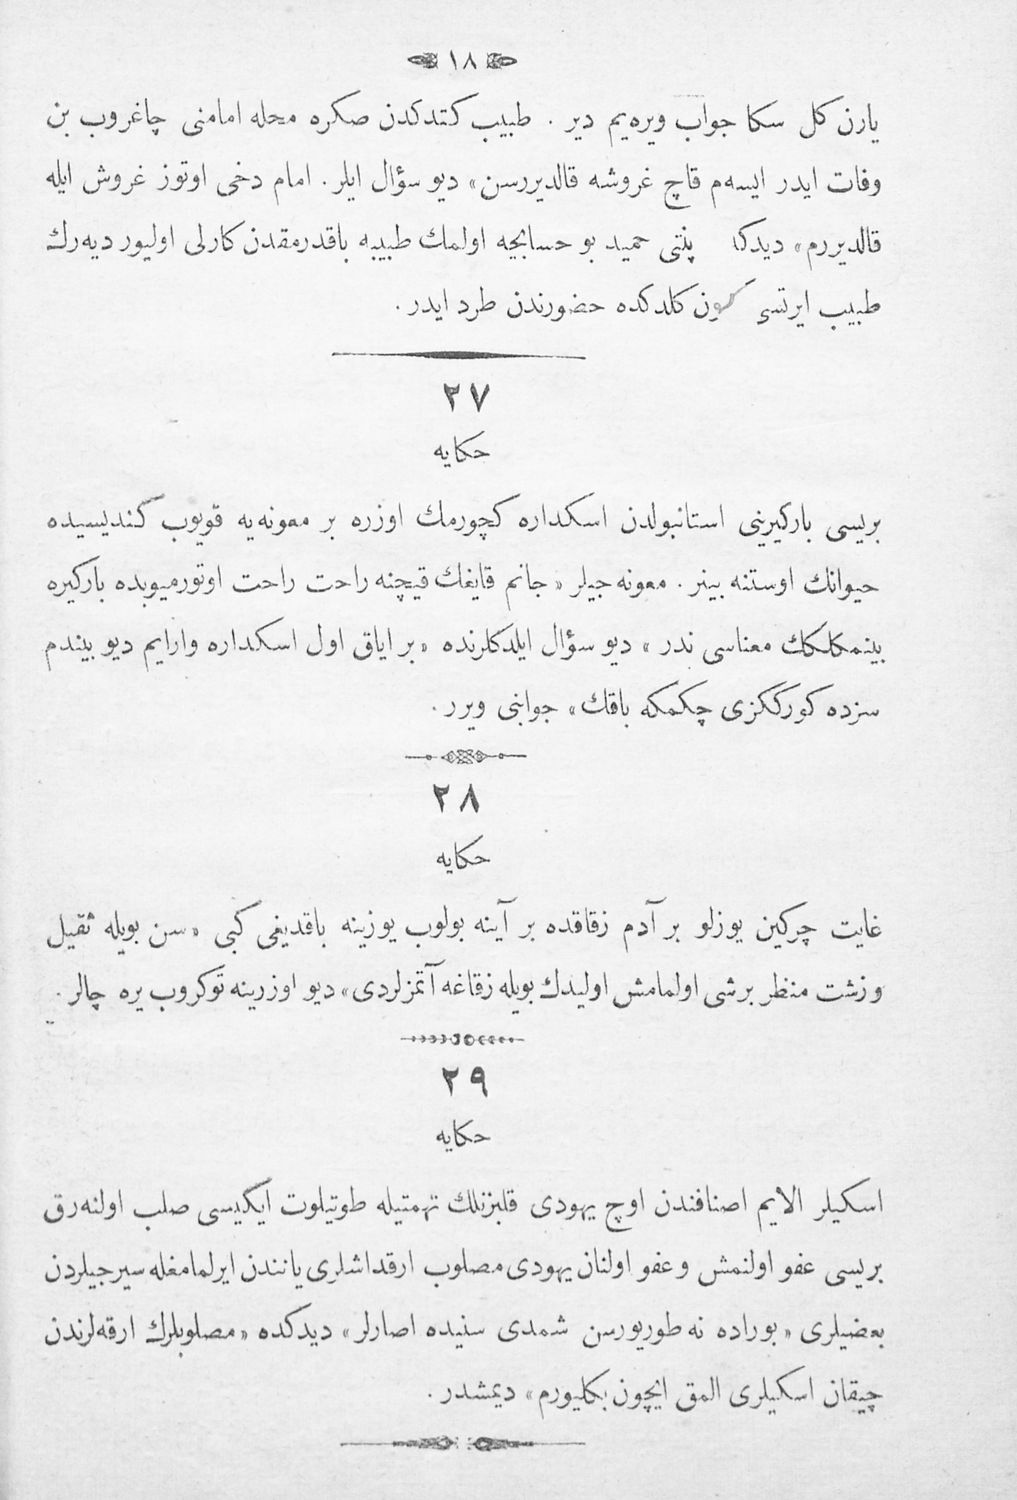 ١٨
يارن كل سكا جواب ويره‌يم دير . طبيب كتدكدن صكره محله امامنى چاغروب بن
وفات ايدر ايسه‌م قاچ غروشه قالديررسن» ديو سؤال ايلر . امام دخى اوتوز غروش ايله
قالديررم» ديدكد پنتى حميد بو حسابجه اولمك طبيبه باقدرمقدن كارلى اوليور ديه‌رك
طبيب ايرتسى كون كلدكده حضورندن طرد ايدر .
٢٧
حكايه
بريسى باركيرينى استانبولدن اسكداره كچورمك اوزره بر معونه‌يه قويوب كنديسيده
حيوانك اوستنه بينر . معونه جيلر « جانم قايغك قيچنه راحت راحت اوتورميوبده باركيره
بينمكلكك معناسى ندر » ديو سؤال ايلدكلرنده « بر اياق اول اسكداره وارايم ديو بيندم
سزده كورككزى چكمكه باقك» جوابنى ويرر .
٢٨
حكايه
غايت چركين يوزلو بر آدم زقاقده بر آينه بولوب يوزينه باقديغى كبى « سن بويله ثقيل
وزشت منظر برشى اولمامش اوليدك بويله زقاغه آتمزلردى» ديو اوزرينه توكروب يره چالر .
٢٩
حكايه
اسكيلر الايم اصنافندن اوچ يهودى قلبزنلك تهمتيله طوتيلوت ايكيسى صلب اولنه‌رق
بريسى عفو اولنمش وعفو اولنان يهودى مصلوب ارقداشلرى يانندن ايرلمامغله سيرجيلردن
بعضيلرى « بوراده نه طوريورسن شمدى سنيده اصارلر» ديدكده « مصلوبلرك ارقه‌لرندن
چيقان اسكيلرى المق ايچون بكليورم» ديمشدر .